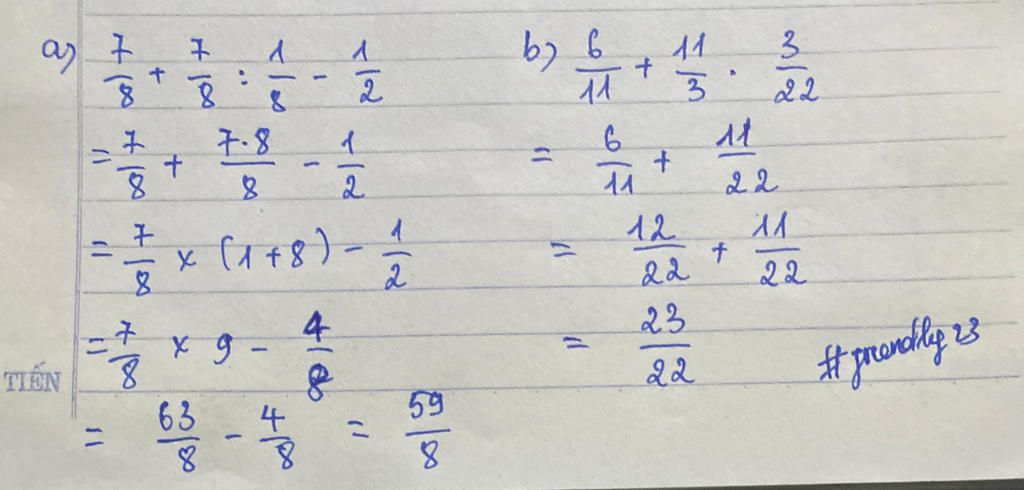 a) 7/8 + 7/8 : 1/8 - 1/2
= 7/8 + 7.8/8 - 1/2
= 7/8 x (1+8) - 1/2
= 7/8 x 9 - 4/8
= 63/8 - 4/8 = 59/8
b) 6/11 + 11/3 . 3/22
= 6/11 + 11/22
= 12/22 + 11/22
= 23/22
TIẾN